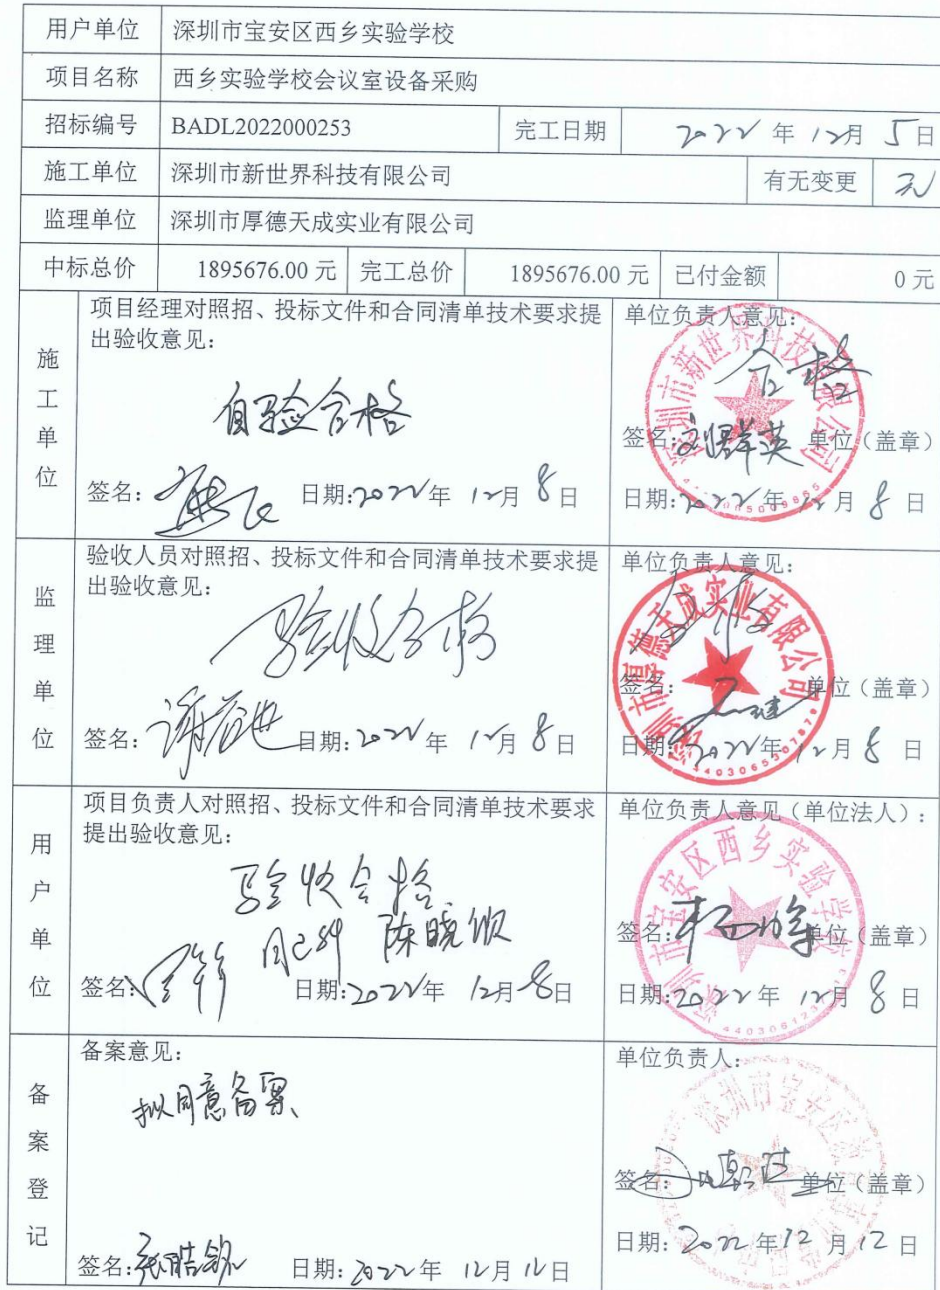 用户单位 深圳市宝安区西乡实验学校
项目名称 西乡实验学校会议室设备采购
招标编号 BADL2022000253 完工日期 2022 年 12月 5日
施工单位 深圳市新世界科技有限公司 有无变更 无
监理单位 深圳市厚德天成实业有限公司
中标总价 1895676.00 元 完工总价 1895676.00 元 已付金额 0 元
施工单位
项目经理对照招、投标文件和合同清单技术要求提
出验收意见：
自验合格
签名： 日期:2022年 12月 8日
单位负责人意见：
合格
签名: 单位（盖章）
日期:2022年 12月 8日
深圳市新世界科技有限公司
监理单位
验收人员对照招、投标文件和合同清单技术要求提
出验收意见：
验收合格
签名： 日期:2022年 12月 8日
单位负责人意见：
合格
签名: 单位（盖章）
日期:2022年 12月 8日
深圳市厚德天成实业有限公司
用户单位
项目负责人对照招、投标文件和合同清单技术要求
提出验收意见：
验收合格
陈晓欣
签名: 日期:2022年 12月 8日
单位负责人意见（单位法人）：
签名: 单位（盖章）
日期:2022年 12月 8日
深圳市宝安区西乡实验学校
备案登记
备案意见：
拟同意备案
签名: 日期:2022年 12月 12日
单位负责人:
签名: 单位（盖章）
日期: 2022 年12 月12 日